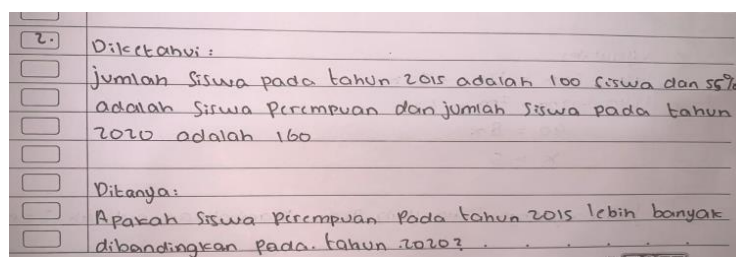 2. Diketahui :
jumlah siswa pada tahun 2015 adalah 100 siswa dan 55%
adalah siswa perempuan dan jumlah siswa pada tahun
2020 adalah 160
Ditanya:
Apakah siswa perempuan pada tahun 2015 lebih banyak
dibandingkan pada tahun 2020?